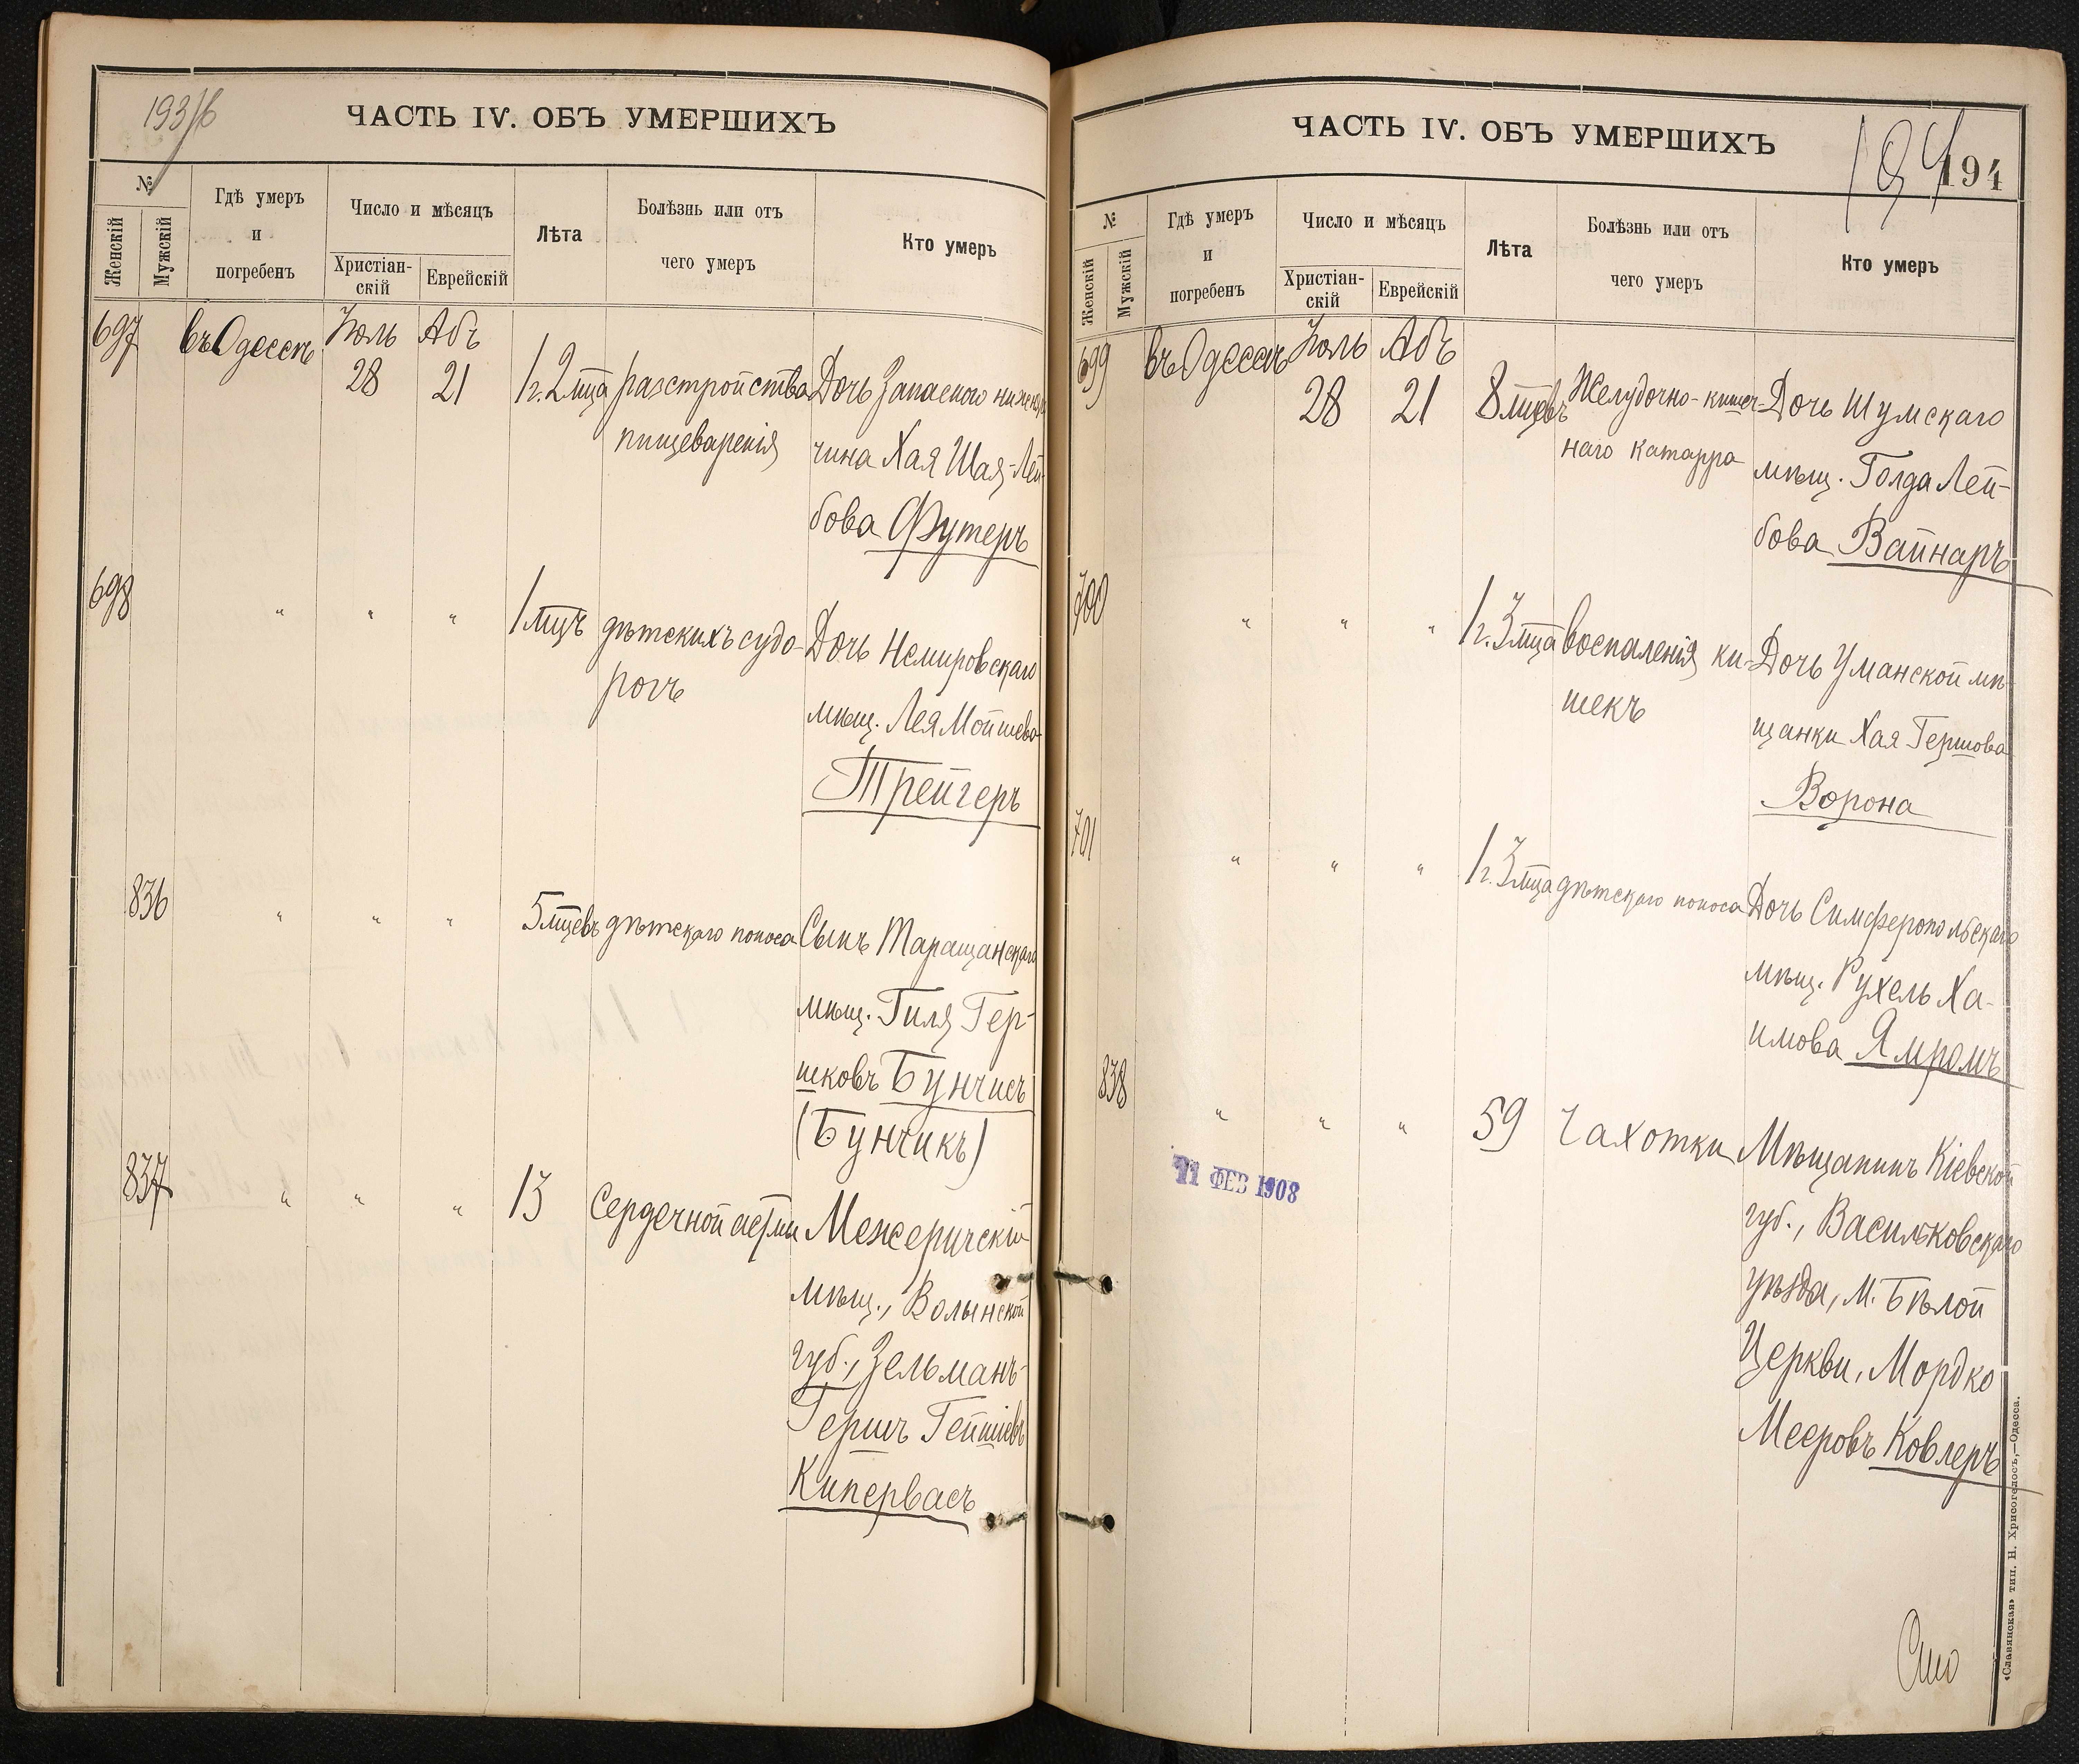 193/б
ЧАСТЬ IV. ОБЪ УМЕРШИХЪ
№
Женскій
Мужскій
Гдѣ умеръ
и
погребенъ
Число и мѣсяцъ
Христіан-
скій
Еврейскій
Лѣта
Болѣзнь или отъ
чего умеръ
Кто умеръ
697 въ Одессѣ Іюль Абъ
28 21 1 г. 2 мца разстройства Дочь Запаснаго нижняго
пищеваренія чина Хая Шая-Лей-
бова Футеръ
698 " " " 1 мцъ дѣтскихъ судо- Дочь Немировскаго
рогъ мѣщ. Лея Мойшева
Трейгеръ
836 " " " 5 мцевъ дѣтскаго поноса Сынъ Таращанскаго
мѣщ. Гиля Гер-
шковъ Бунчисъ
(Бунчикъ)
837 " " " 13 Сердечной астмы Межеричскій
мѣщ., Волынской
губ., Зельманъ-
Гершъ Гейшіевъ
Кипервасъ
ЧАСТЬ IV. ОБЪ УМЕРШИХЪ
194
194
№
Женскій
Мужскій
Гдѣ умеръ
и
погребенъ
Число и мѣсяцъ
Христіан-
скій
Еврейскій
Лѣта
Болѣзнь или отъ
чего умеръ
Кто умеръ
699 въ Одессѣ Іюль Абъ
28 21 8 мцевъ Желудочно-кишеч- Дочь Шумскаго
наго катарра мѣщ. Голда Лей-
бова Вайнаръ
700 " " " 1 г. 3 мца воспаленія ки- Дочь Уманской мѣ-
шекъ щанки Хая Гершова
Ворона
701 " " " 1 г. 3 мца дѣтскаго поноса Дочь Симферопольскаго
мѣщ. Рухель Ха-
имова Ямромъ
838 " " " 59 Чахотки Мѣщанинъ Кіевской
21 ФЕВ 1908
губ., Васильковскаго
уѣзда, м. Бѣлой
Церкви, Мордко
Мееровъ Ковлеръ
«Славянская» тип. Н. Хрисогелосъ,—Одесса.